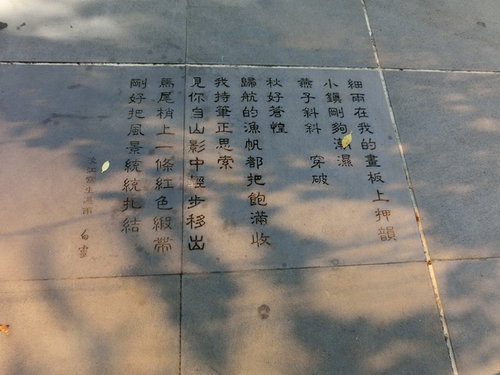 細雨在我的畫板上押韻
小鎮剛夠潮濕
燕子斜斜 穿破
秋好蒼惶
歸航的漁帆都把飽滿收
我持筆正思索
見你自山影中輕步移出
馬尾梢上一條紅色緞帶
剛好把風景統統扎結
淡江寫生遇雨 白靈